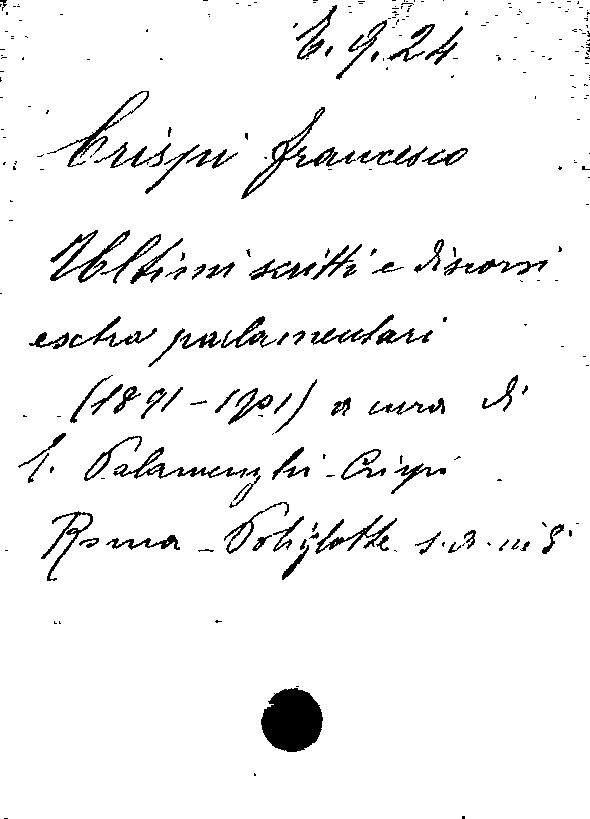 E. 9. 24
Crispi Francesco
Ultimi scritti e discorsi
extra parlamentari
(1891-1901) a cura di
T. Palamenghi-Crispi
Roma - Poliglotta s.a. in 8°